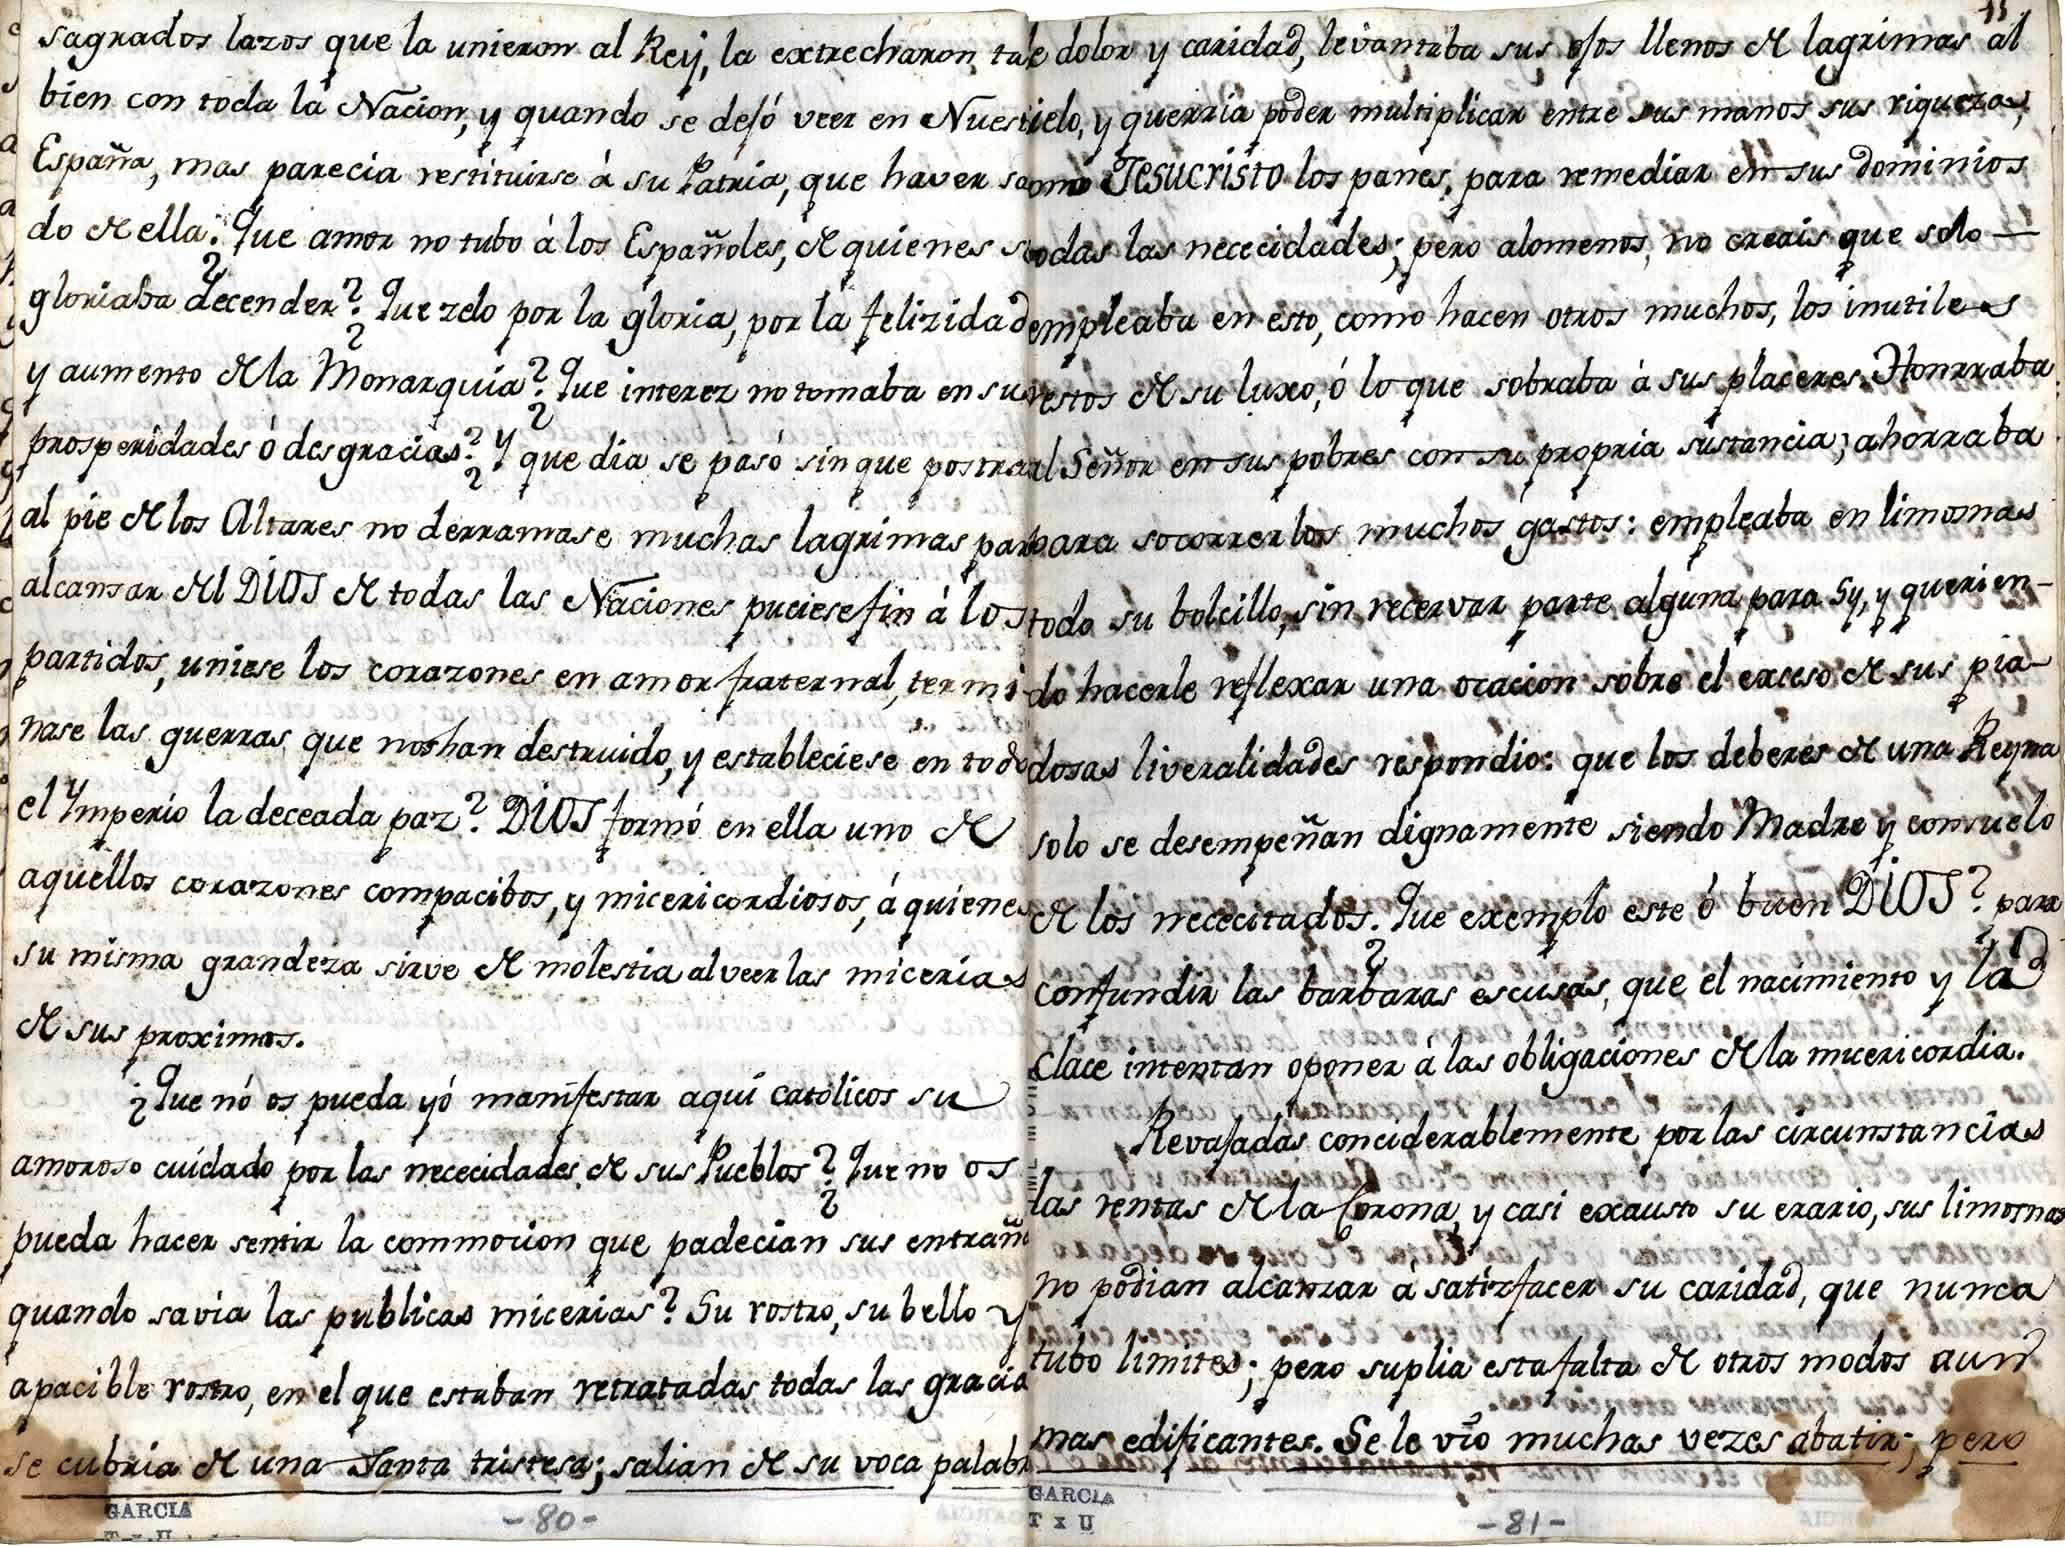 sagrados lazos que la unieron al Rey, la extrecharon, ta
bien con toda la Nacion, y quando se dejó veer en Nues
España, mas parecia restituirse á su Patria, que haver sa
do de ella. ¿Que amor no tubo á los Españoles, de quienes s
gloriaba decender? ¿Que zelo por la gloria, por la felizidad
y aumento de la Monarquia? ¿Que interez no tomaba en su
prosperidades ó desgracias? ¿Y que dia se pasó sin que postra
al pie de los Altares no derramase muchas lagrimas par
alcansar del DIOS de todas las Naciones puciese fin á los
partidos, uniese los corazones en amor fraternal, termi-
nase las guerras que nos han destruido, y estableciese en tod
el Ymperio la deceada paz? DIOS formó en ella uno de
aquellos corazones compacibos, y micericordiosos, á quienes
su misma grandeza sirve de molestia al veer las micerias
de sus proximos.
¿Que nó os pueda yó manifestar aquí catolicos su
amoroso cuidado por las nececidades de sus Pueblos? ¿Que no os
pueda hacer sentir la commocion que padecian sus entrañ
quando savia las publicas micerias? Su rostro, su bello y
apacible rostro, en el que estaban retratadas todas las gracia
se cubria de una Santa tristesa; salian de su voca palab
GARCIA
T x U
-80-
11
e dolor y caridad, levantaba sus ojos llenos de lagrimas al
ielo, y querria poder multiplicar entre sus manos sus riquezas,
omo Jesucristo los panes, para remediar en sus dominios
odas las nececidades; pero alomenos, no creais que solo —
empleaba en esto, como hacen otros muchos, los inutiles
restos de su luxo, ó lo que sobraba á sus placeres. Honrraba
al Señor en sus pobres con su propria sustancia; ahorraba
para socorrerlos muchos gastos: empleaba en limosnas
todo su bolcillo, sin recervar parte alguna para Sy, y querien-
do hacerle reflexar una ocacion sobre el exceso de sus pia-
dosas liveralidades respondio: que los deberes de una Reyna
solo se desempeñan dignamente siendo Madre y consuelo
de los nececitados. ¿Que exemplo este ó buen DIOS? para
confundir las barbaras escusas, que el nacimiento y la
clace intentan oponer á las obligaciones de la micericordia.
Revajadas conciderablemente por las circunstancias
las rentas de la Corona, y casi exausto su erario, sus limosnas
no podian alcanzar á satizfacer su caridad, que nunca
tubo limites; pero suplia esta falta de otros modos aun
mas edificantes. Se le vio muchas vezes abatir; pero
GARCIA
T x U
-81-